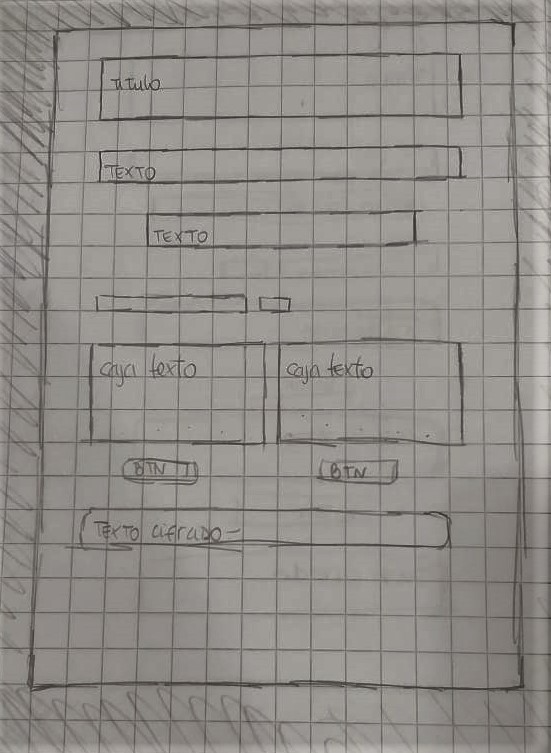 TITULO
TEXTO
TEXTO
caja texto
caja texto
BTN
BTN
TEXTO cifrado